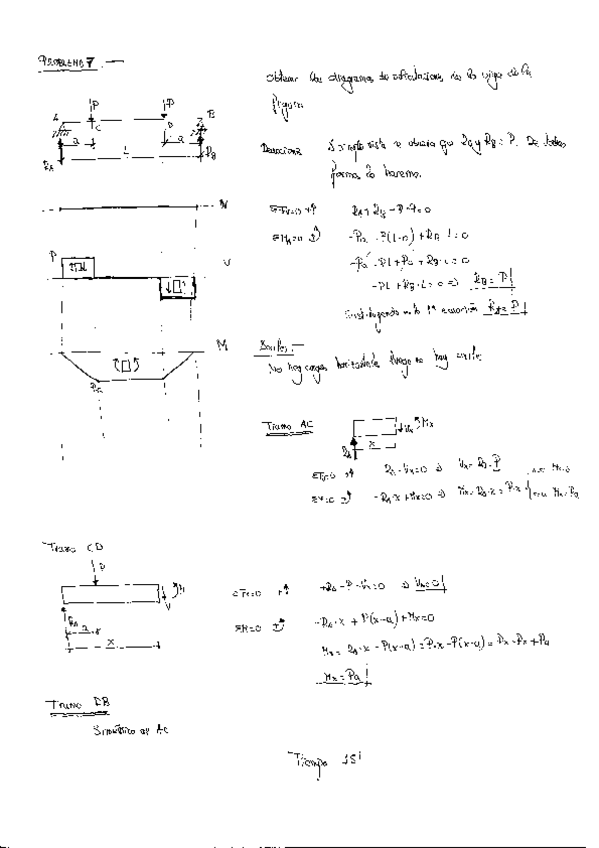 PROBLEMA 7.-
Obtener los diagramas de solicitaciones de la viga de la
figura
P P
A B
C D
a a
L
RA RB
Reacciones
RA y RB = P. De todas
formas lo haremos.
N
ΣFv=0 +↑ RA+RB-P-P=0
ΣMA=0 -Pa-P(L-a)+RB·L=0
V
P
-Pa-PL+Pa+RB·L=0
-PL+RB·L=0 => RB=P
Sustituyendo en la 1ª ecuación RA=P
M
Pa
Axiles.-
No hay cargas horizontales luego no hay axiles
Tramo AC
Vx Mx
RA x
ΣFv=0 +↑ RA-Vx=0 Vx=RA=P
ΣM=0 -RA·x+Mx=0 Mx=RA·x=P·x
Tramo CD
P
M
V
RA
a
x
ΣFv=0 +↑ +RA-P-Vx=0 Vx=0
ΣM=0 -RA·x+P(x-a)+Mx=0
Mx=RA·x-P(x-a)=P·x-P(x-a)=Px-Px+Pa
Mx=Pa
Tramo DB
Simétrico al AC
Tiempo 15'